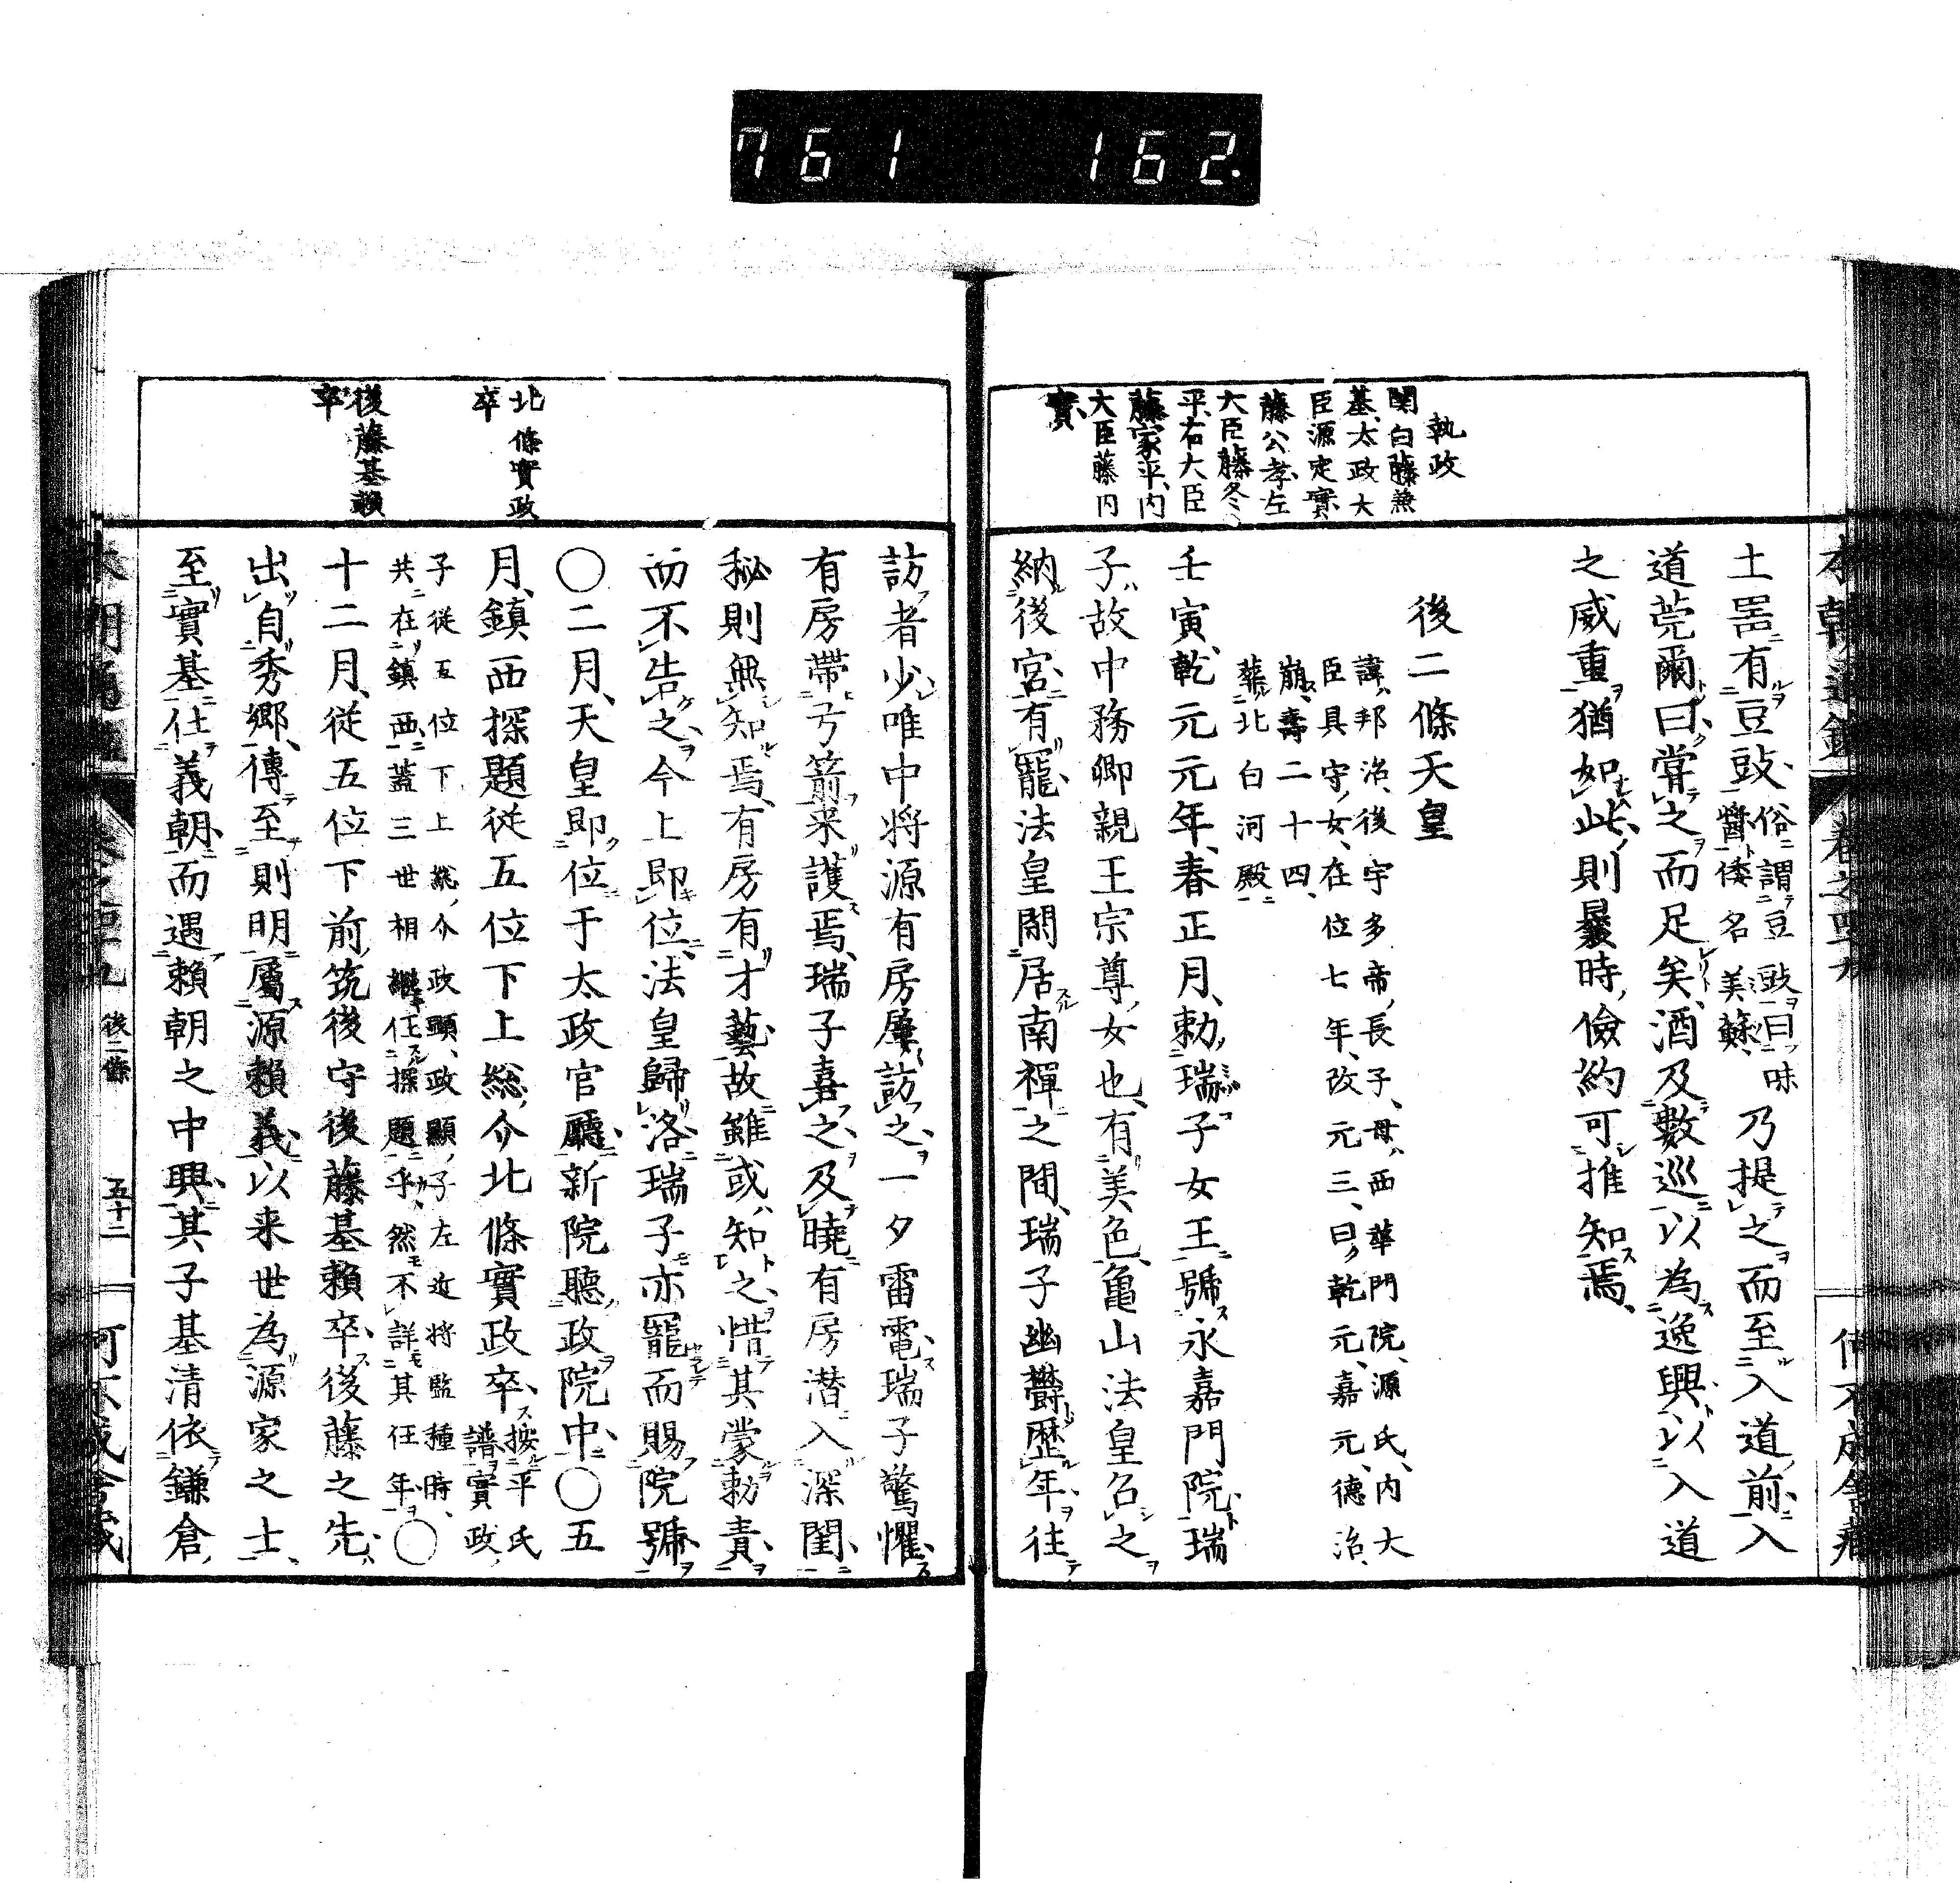 761 162.
執政
関白藤兼
基、太政大
臣源定實
藤公孝、左
大臣藤冬
平、右大臣
藤家平、内
大臣藤内
實
土噐有豆豉、俗謂豆豉曰味醬、倭名美蘇、乃提之而至入道前、入
道莞爾曰、甞之而足矣、酒及數巡以為逸興、以入道
之威重猶如此、則曩時儉約可推知焉、
後二條天皇
諱邦治、後宇多帝長子、母西華門院、源氏、内大
臣具守女、在位七年、改元三、曰乾元、嘉元、德治、
崩壽二十四、
葬北白河殿
壬寅、乾元元年、春正月、勅瑞子女王號永嘉門院、瑞
子故中務卿親王宗尊女也、有美色、亀山法皇召之
納後宮、有寵、法皇閑居南禪之間、瑞子幽欝歴年、往
訪者少、唯中将源有房屢訪之、一夕雷電、瑞子驚懼、
有房帶弓箭来護焉、瑞子喜之、及曉有房潜入深閨、
秘則無知焉、有房有才藝、故雖或知之、惜其蒙勅責、
而不告之、今上即位、法皇歸洛、瑞子亦寵而賜院號
〇二月、天皇即位于太政官廳、新院聽政院中、〇五
月、鎮西探題從五位下上総介北條實政卒、按平氏譜實政、
子從五位下上総介政顯、政顯子左近将監種時、
共在鎮西、蓋三世相繼任探題乎、然不詳其任年、〇
十二月、從五位下前筑後守後藤基賴卒、後藤之先、
出自秀郷、傳至則明屬源賴義、以来世為源家之士、
至實基仕義朝、而遇賴朝之中興、其子基清依鎌倉、
北條實政
卒
後藤基賴
卒
後二條
五十二